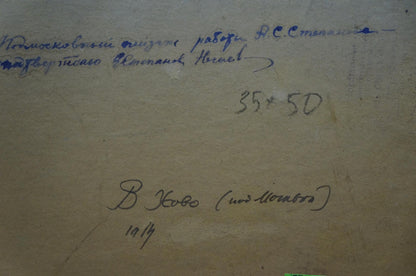 Подмосковный пейзаж работы А.С.Степанова
подтвержаю Степанов
35 × 50
В Хово (под Москвой)
1914